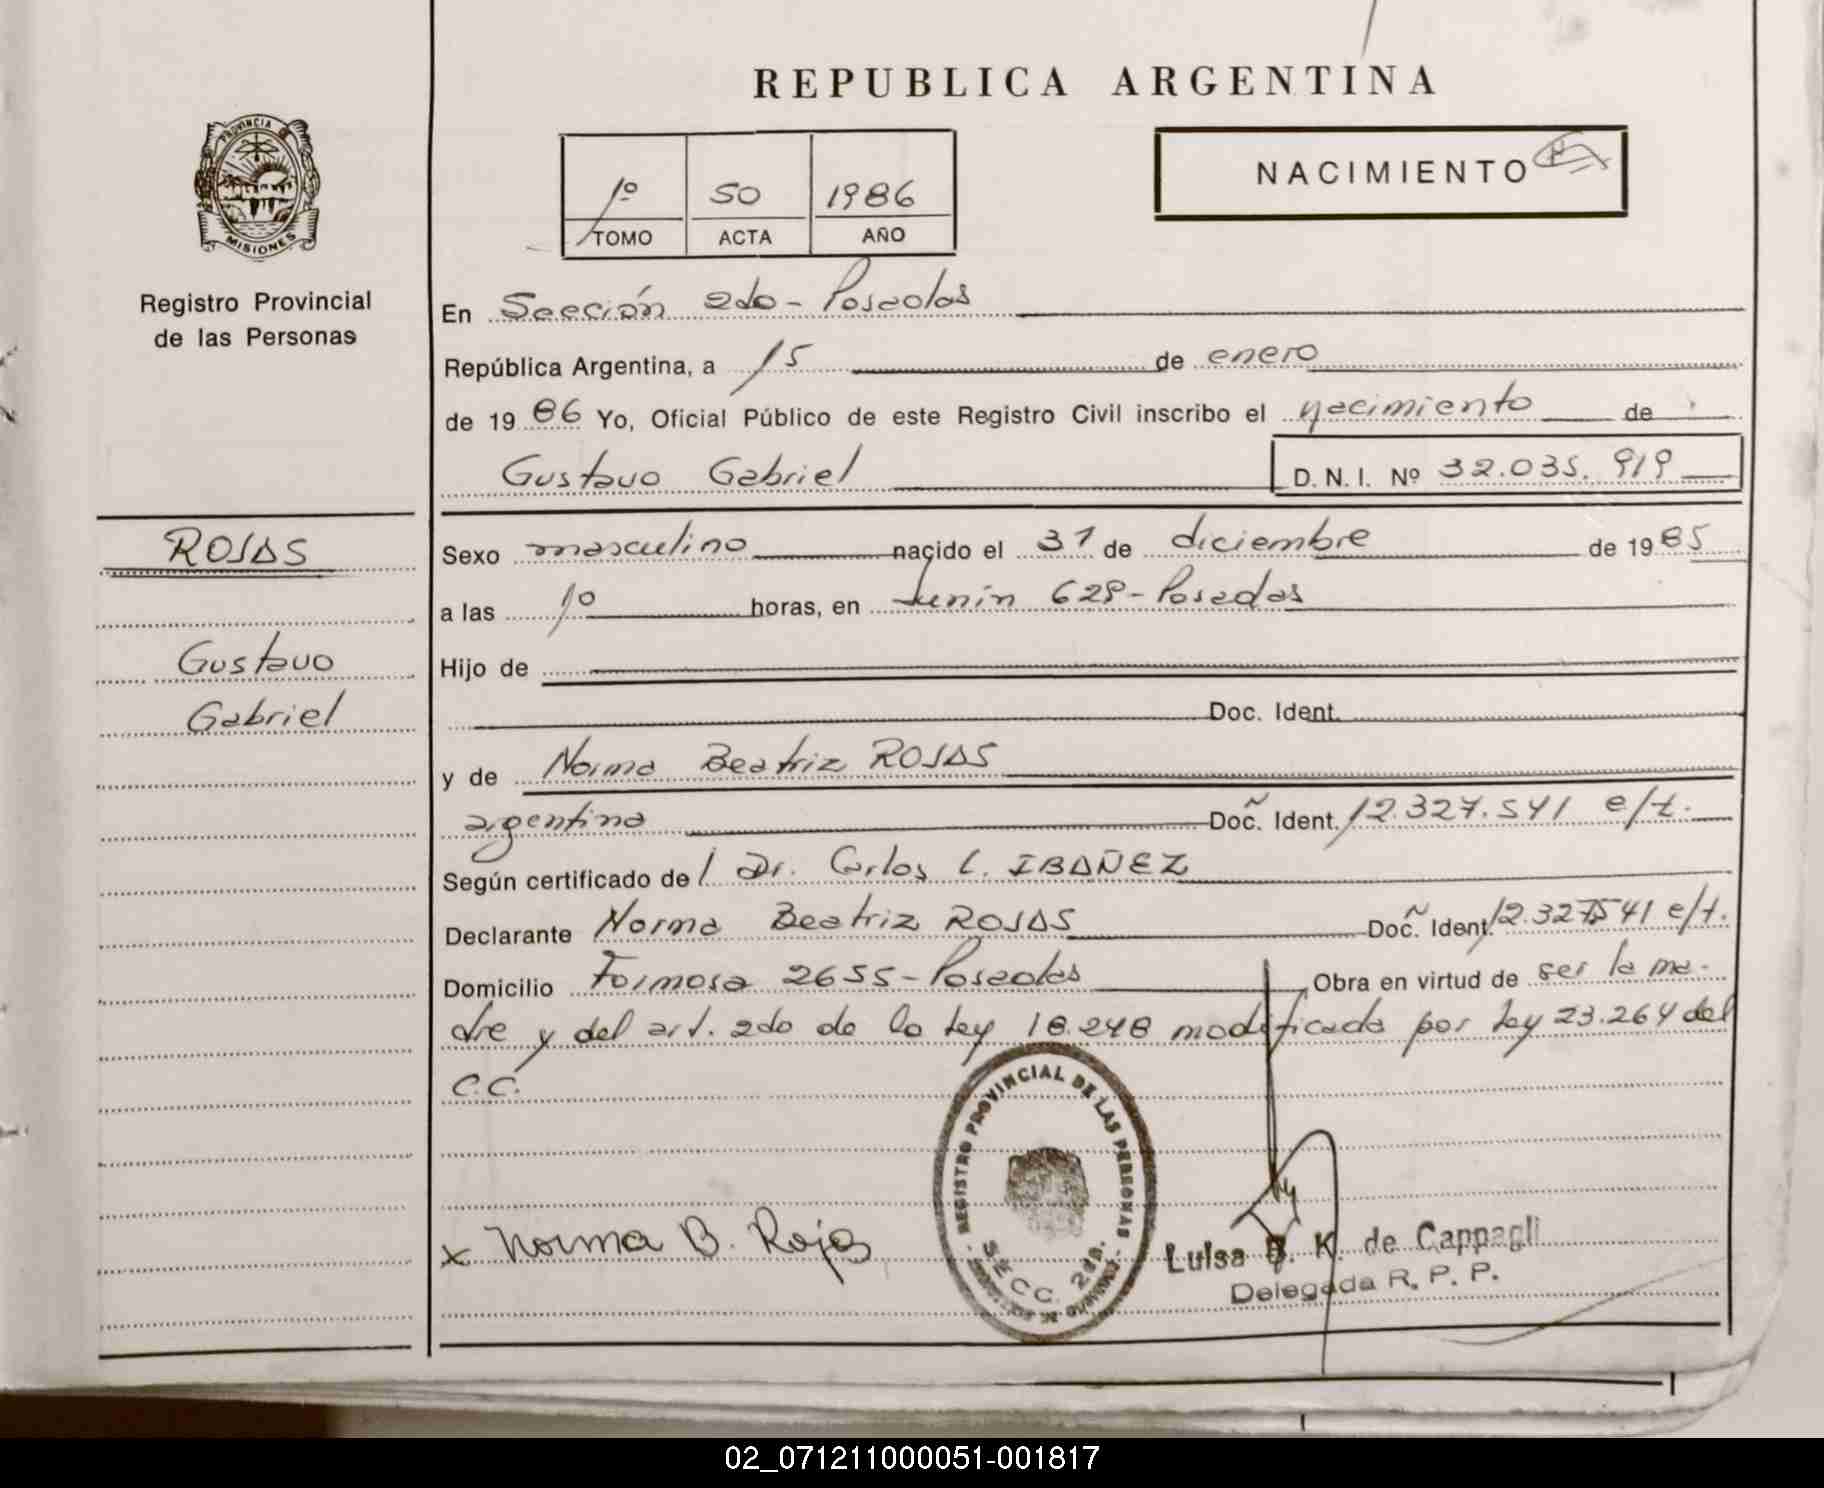 REPUBLICA ARGENTINA
PROVINCIA DE
MISIONES
Registro Provincial
de las Personas
1º 50 1986
TOMO ACTA AÑO
NACIMIENTO
En Sección 2da - Posadas
República Argentina, a 15 de enero
de 1986 Yo, Oficial Público de este Registro Civil inscribo el nacimiento de
Gustavo Gabriel D. N. I. Nº 32.035.919
ROJAS
Gustavo
Gabriel
Sexo masculino nacido el 31 de diciembre de 1985
a las 10 horas, en Junín 629 - Posadas
Hijo de
Doc. Ident.
y de Norma Beatriz ROJAS
argentina Doc. Ident. 12.327.541 e/t.
Según certificado del Dr. Carlos L. IBAÑEZ
Declarante Norma Beatriz ROJAS Doc. Ident. 12.327541 e/t.
Domicilio Formosa 2655 - Posadas Obra en virtud de ser la ma-
dre y del art. 2do de la Ley 18.248 modificada por Ley 23.264 del
C.C.
REGISTRO PROVINCIAL DE LAS PERSONAS
SECC. 2da.
x Norma B. Rojas
Luisa B. K. de Cappagli
Delegada R. P. P.
02_071211000051-001817